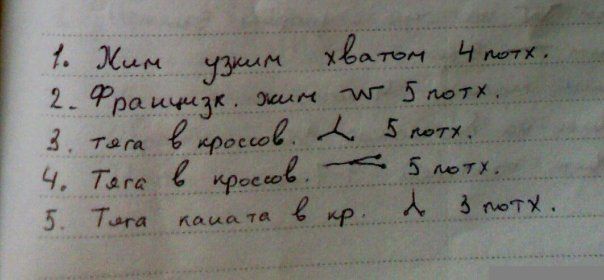 1. Жим узким хватом 4 потх.
2. Французк. жим 5 потх.
3. тяга в кроссов. 5 потх.
4. Тяга в кроссов. 5 потх.
5. Тяга каната в кр. 3 потх.